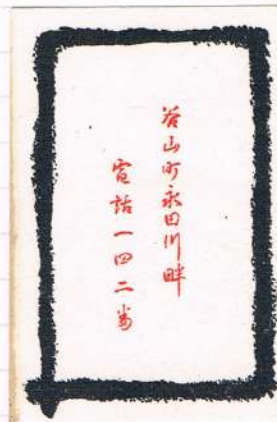 谷山町永田川畔
電話一四二番